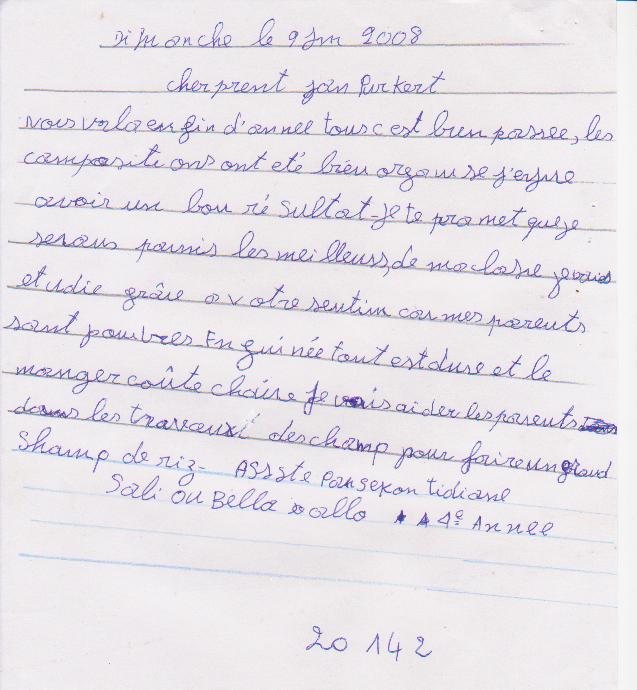 Dimanche le 9 Jin 2008
cherprent jan Purkert
nous voila en fin d'annee tous c est bien passee, les
compositions ont eté bien organise j'espre
avoir un bon ré sultat - Je te promet que je
serais parmis les meilleurs, de ma classe je vais
etudie grâce a votre sentim car mes parents
sont pauvres En guinée tout est dure et le
manger coûte chaire Je vais aider les parents
dans les travaux deschamp pour faire un grand
Shamp de riz - ASSSte Par sekon tidiane
Sali ou Bella Dallo 4e Année
20 142